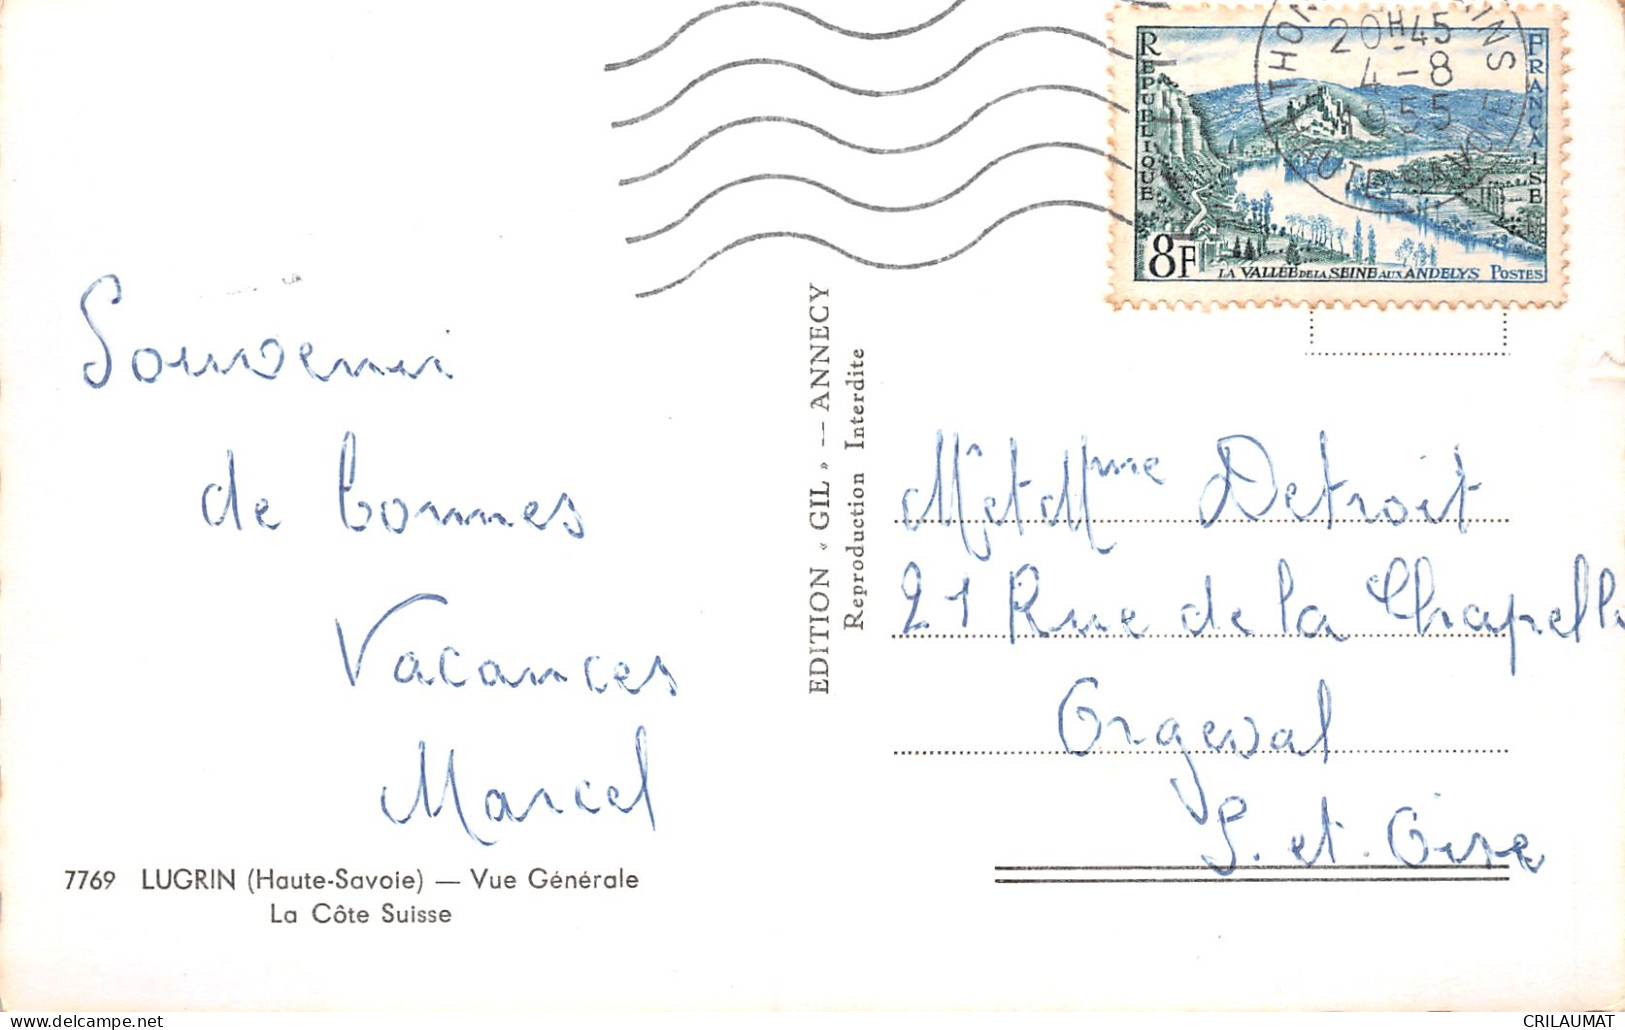 Souvenir
de bonnes
Vacances
Marcel
7769 LUGRIN (Haute-Savoie) — Vue Générale
La Côte Suisse
EDITION « GIL » — ANNECY
Reproduction Interdite
20H45
4-8
1955
HAUTE SAVOIE
RÉPUBLIQUE
FRANÇAISE
8F
LA VALLÉE DE LA SEINE AUX ANDELYS POSTES
Mr et Mme Detroit
21 Rue de la Chapelle
Orgeval
S. et. Oise
CRILAUMAT